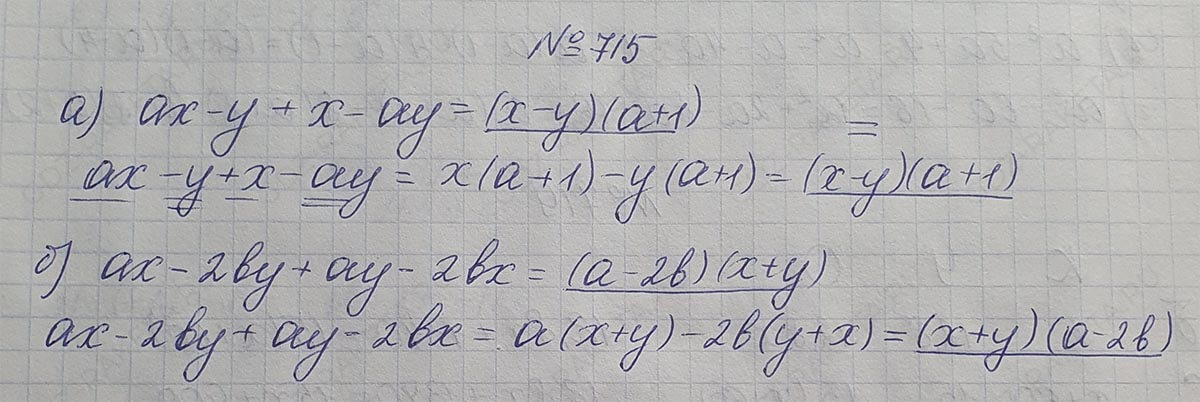 № 715
а) ax - y + x - ay = (x-y)(a+1)
=
ax - y + x - ay = x(a+1) - y(a+1) = (x-y)(a+1)
б) ax - 2by + ay - 2bx = (a-2b)(x+y)
ax - 2by + ay - 2bx = a(x+y) - 2b(y+x) = (x+y)(a-2b)